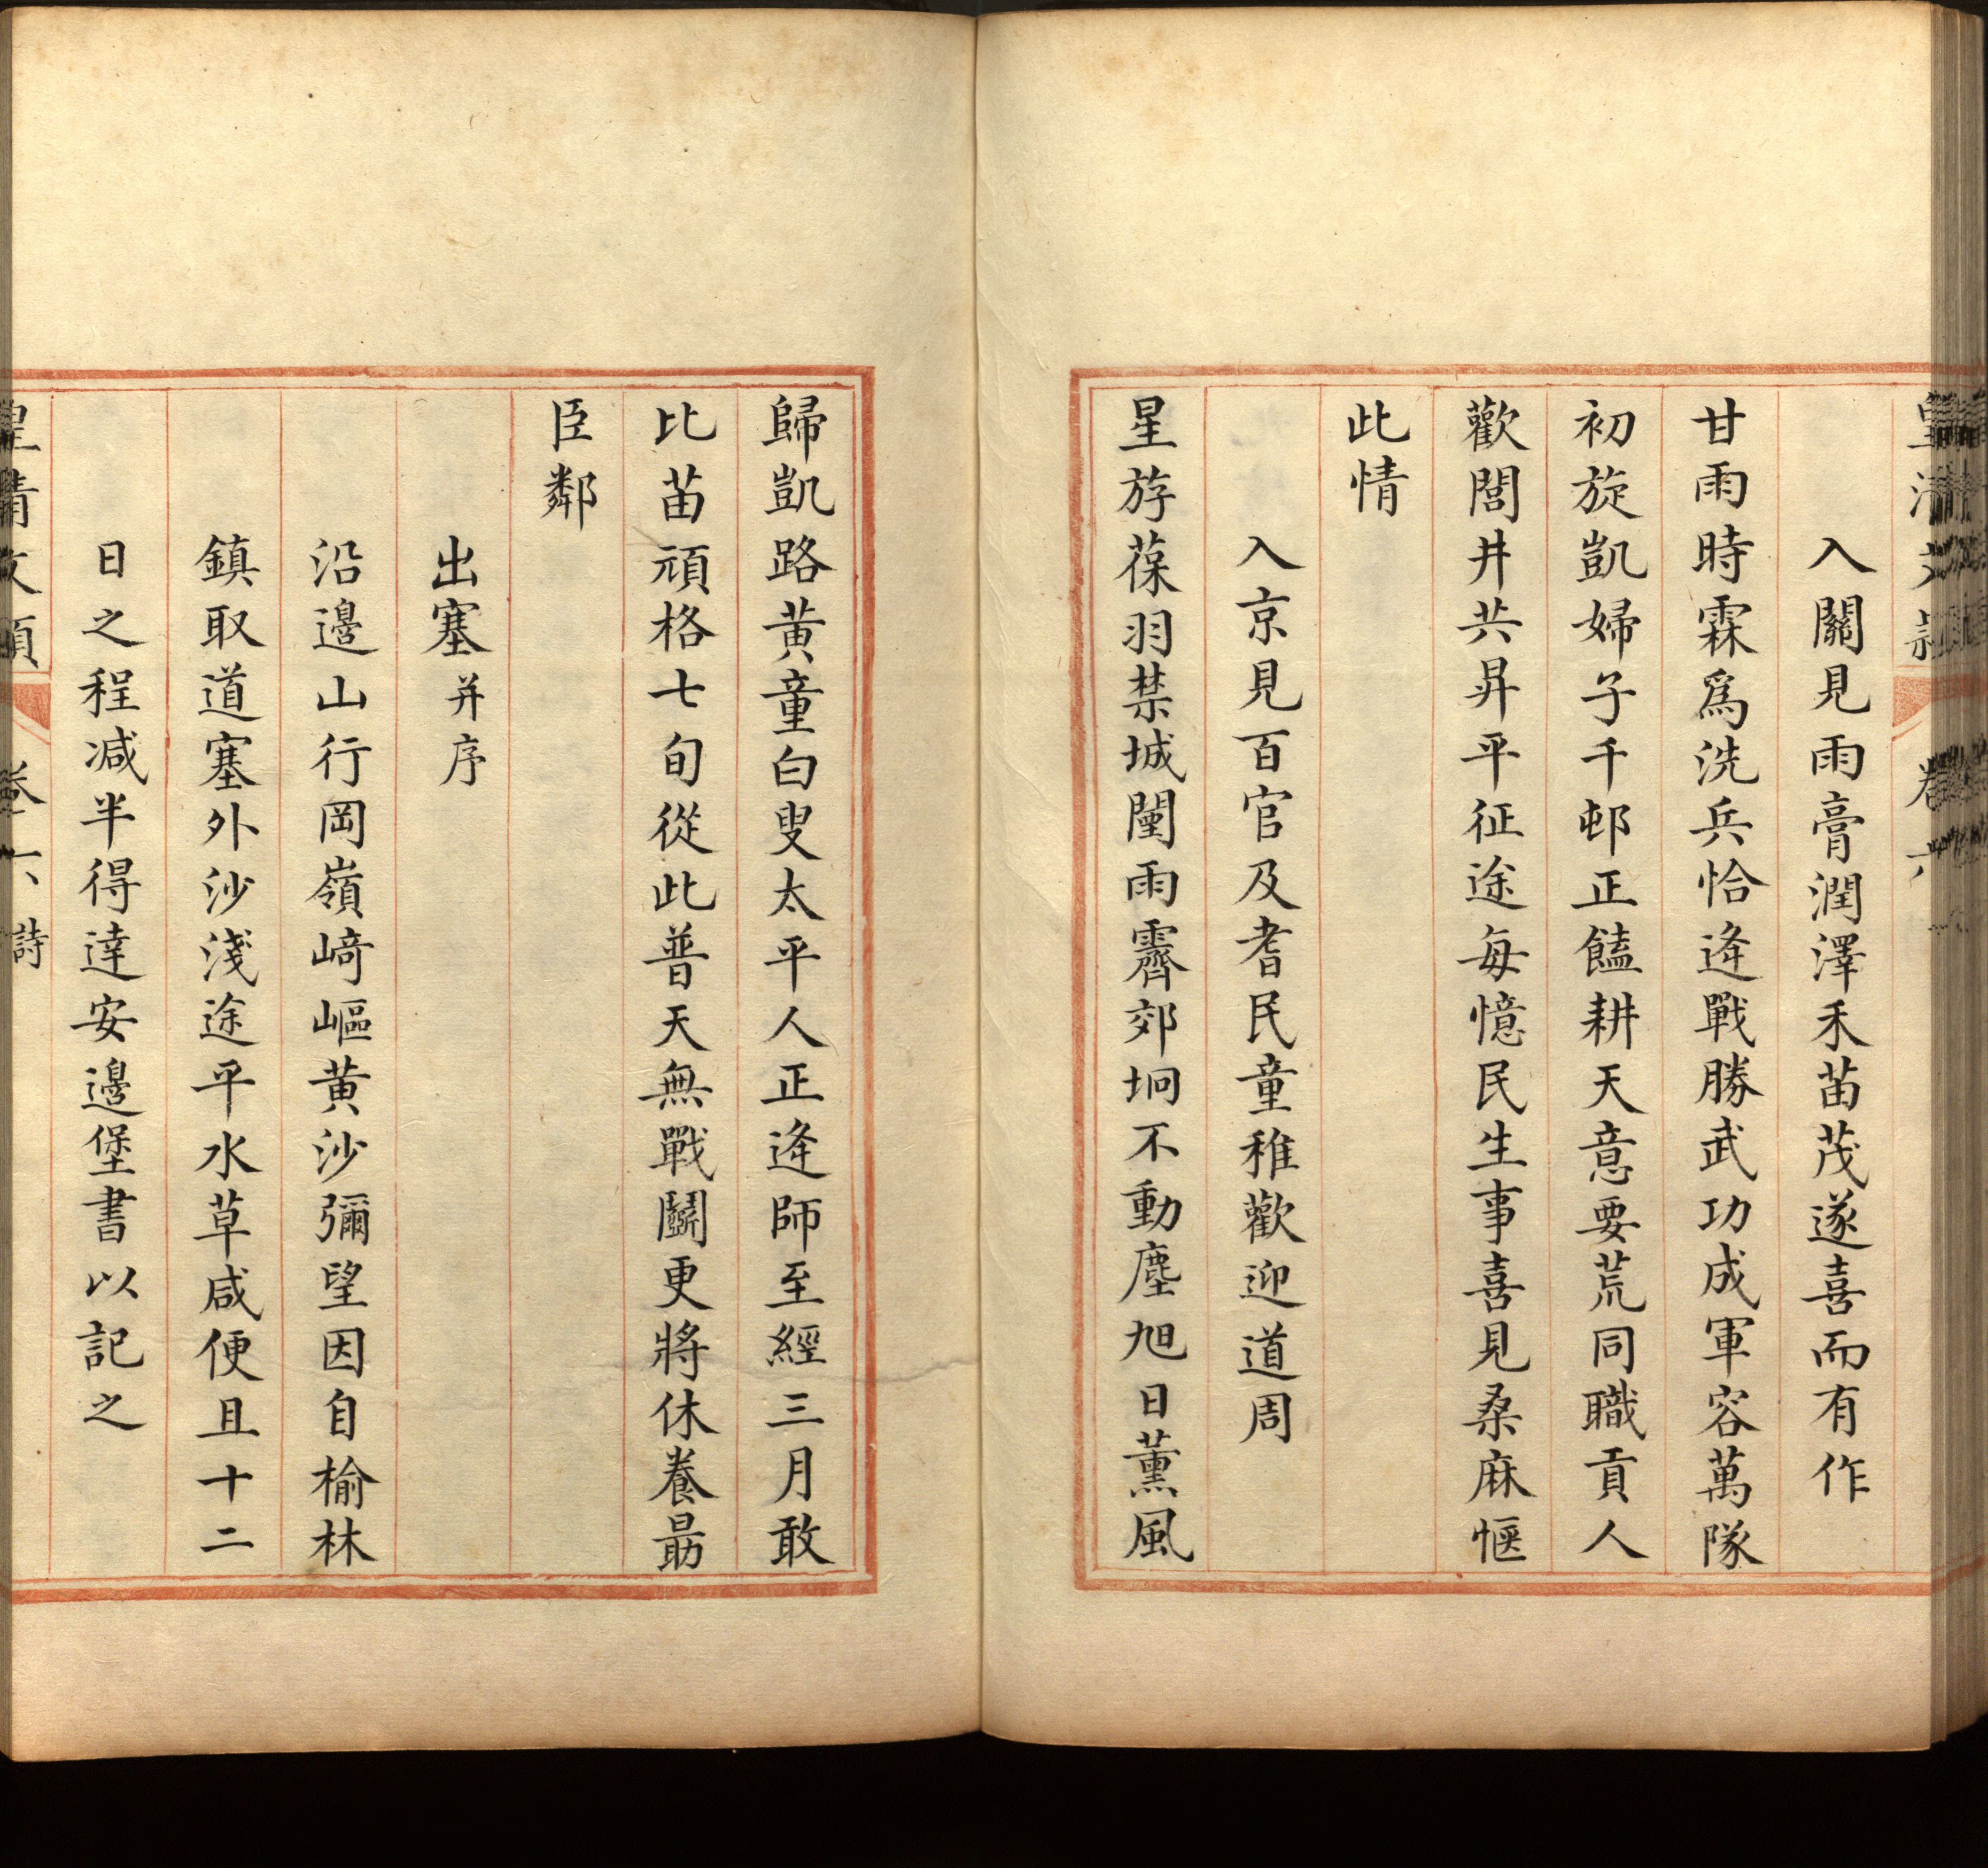 皇清文穎 卷六
入關見雨膏潤澤禾苗茂遂喜而有作
甘雨時霖爲洗兵恰逄戰勝武功成軍容萬隊
初旋凱婦子千邨正饁耕天意要荒同職貢人
歡閭井共昇平征途每憶民生事喜見桑麻愜
此情
入京見百官及耆民童稚歡迎道周
星斿葆羽禁城闉雨霽郊坰不動塵旭日薰風
歸凱路黄童白叟太平人正逄師至經三月敢
比苗頑格七旬從此普天無戰鬬更將休養勗
臣鄰
出塞并序
沿邊山行岡嶺﨑嶇黄沙彌望因自榆林
鎮取道塞外沙淺途平水草咸便且十二
日之程减半得達安邊堡書以記之
皇清文穎 卷六 詩